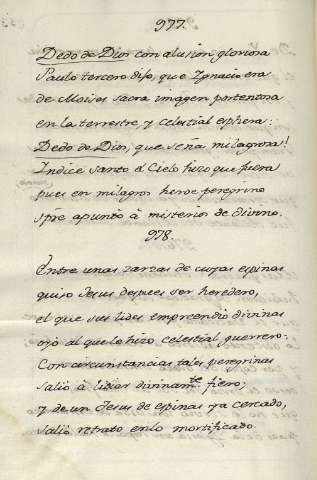 977.
Dedo de Dios con alusion gloriosa
Paulo tercero dijo, que Ygnacio era
de Moises sacra imagen portentosa
en la terrestre, y celestial esphera:
Dedo de Dios, que seña milagrosa!
Indice santo el Cielo hizo que fuera
pues en milagros heroe peregrino
spre apuntò à misterios de divino.
978.
Entre unas zarzas de cuyas espinas
quiso Jesus despues ser heredero,
el que sus lides emprendiò divinas
oyò al que lo hizo celestial guerrero.
Con circunstancias tales peregrinas
saliò à lidiar divinamte. fiero;
y de un Jesus de espinas ya cercado,
saliò retrato en lo mortificado.